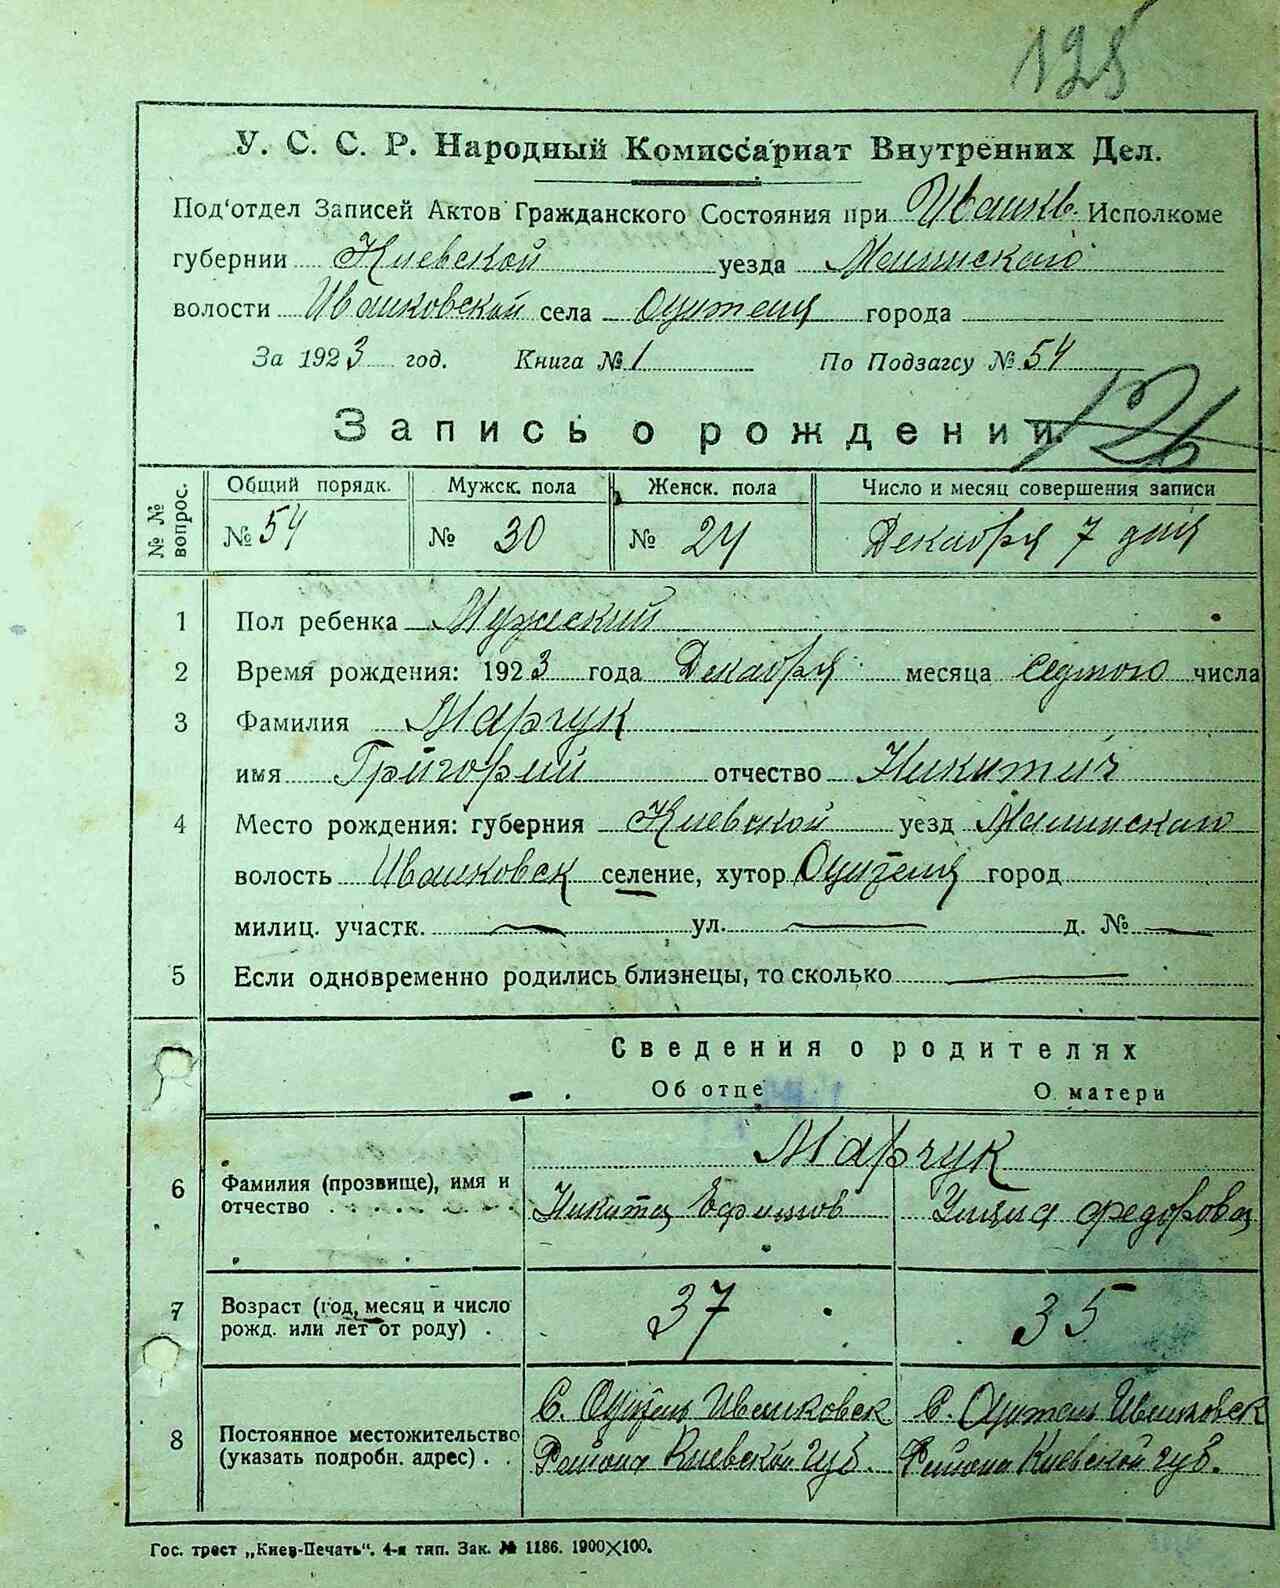 125
У. С. С. Р. Народный Комиссариат Внутренних Дел.
Под'отдел Записей Актов Гражданского Состояния при Исполкоме
губернии Киевской уезда Малинского
волости Иванковской села города
За 1923 год. Книга № 1 По Подзагсу № 54
Запись о рождении. 126
№№ вопрос. Общий порядк. Мужск. пола Женск. пола Число и месяц совершения записи
№ 54 № 30 № 24 Декабря 7 дня
1 Пол ребенка Мужеский
2 Время рождения: 1923 года Декабря месяца седмого числа
3 Фамилия Марчук
имя Григорий отчество Никитич
4 Место рождения: губерния Киевской уезд Малинского
волость Иванковск селение, хутор город
милиц. участк. — ул. — д. № —
5 Если одновременно родились близнецы, то сколько —
Сведения о родителях
Об отце О матери
Марчук
6 Фамилия (прозвище), имя и
отчество . . . . . . . Никита Ефимов Федорова
7 Возраст (год, месяц и число 37 35
рожд. или лет от роду) .
С. Иванковск С. Иванковск
8 Постоянное местожительство
(указать подробн. адрес) . . Района Киевской губ. Района Киевской губ.
Гос. трест „Киев-Печать“. 4-я тип. Зак. № 1186. 1900×100.